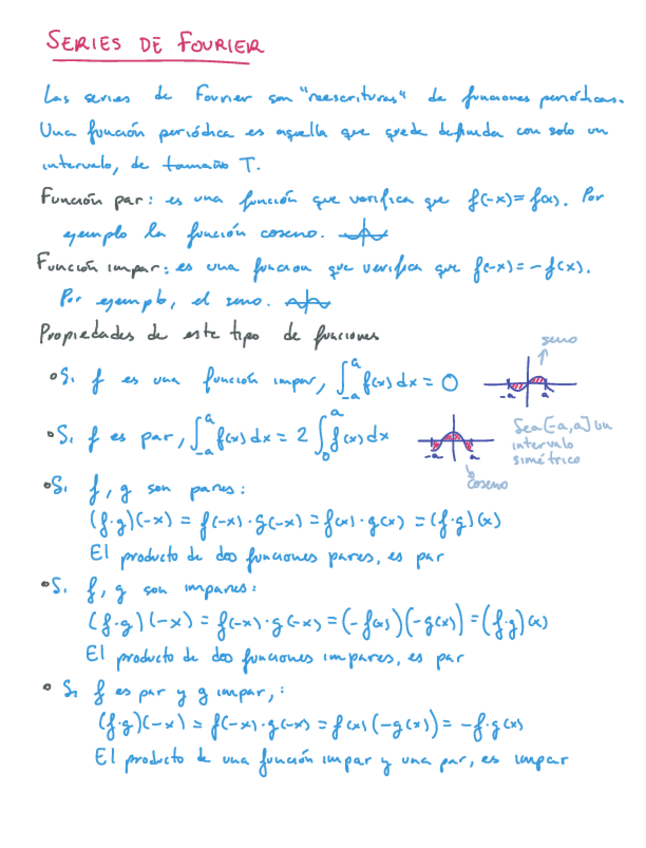 SERIES DE FOURIER
Las series de Fourier son "reescrituras" de funciones periódicas.
Una función periódica es aquella que queda definida con solo un
intervalo, de tamaño T.
Función par: es una función que verifica que f(-x)=f(x). Por
ejemplo la función coseno.
Función impar: es una función que verifica que f(-x)=-f(x).
Por ejemplo, el seno.
Propiedades de este tipo de funciones
seno
•Si f es una función impar, ∫_{-a}^{a} f(x)dx = 0
-a a
•Si f es par, ∫_{-a}^{a} f(x)dx = 2∫_{0}^{a} f(x)dx
-a a
Sea [-a,a] un
intervalo
simétrico
coseno
•Si f,g son pares:
(f·g)(-x) = f(-x)·g(-x) = f(x)·g(x) = (f·g)(x)
El producto de dos funciones pares, es par
•Si f,g son impares:
(f·g)(-x) = f(-x)·g(-x) = (-f(x))(-g(x)) = (f·g)(x)
El producto de dos funciones impares, es par
• Si f es par y g impar,:
(f·g)(-x) = f(-x)·g(-x) = f(x)(-g(x)) = -f·g(x)
El producto de una función impar y una par, es impar